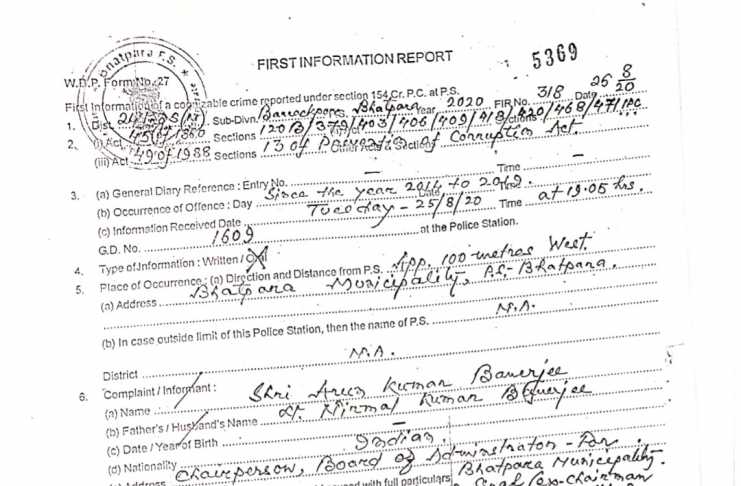 Bhatpara P.S.
FIRST INFORMATION REPORT
5369
W.B.P. Form No. 27
First Information of a cognizable crime reported under section 154 Cr. P.C. at P.S.
1. Dist. 24 Pgs (N). Sub-Divn. Barrackpore, Bhatpara Year 2020 FIR No. 318 Date 25 8/20
2. (i) Act 45 of 1860 Sections 120B/379/403/406/409/418/420/468/471 IPC
(iii) Act 49 of 1988 Sections 13 of Prevention of Corruption Act.
3. (a) General Diary Reference : Entry No. – Time –
(b) Occurrence of Offence : Day Since the year 2014 to 2019.
(c) Information Received Date Tuesday – 25/8/20 Time at 19.05 hrs.
G.D. No. 1609 at the Police Station.
4. Type of Information : Written / Oral
5. Place of Occurrence : (a) Direction and Distance from P.S. App. 100 metres West.
(a) Address Bhatpara Municipality, P.S.- Bhatpara.
(b) In case outside limit of this Police Station, then the name of P.S. N.A.
District N.A.
6. Complaint / Informant :
(a) Name Shri Arun Kumar Banerjee
(b) Father's / Husband's Name Lt. Nirmal Kumar Banerjee
(c) Date / Year of Birth
(d) Nationality Indian.
Address Chairperson, Board of Administrator - For
Bhatpara Municipality.
with full particulars Chairman